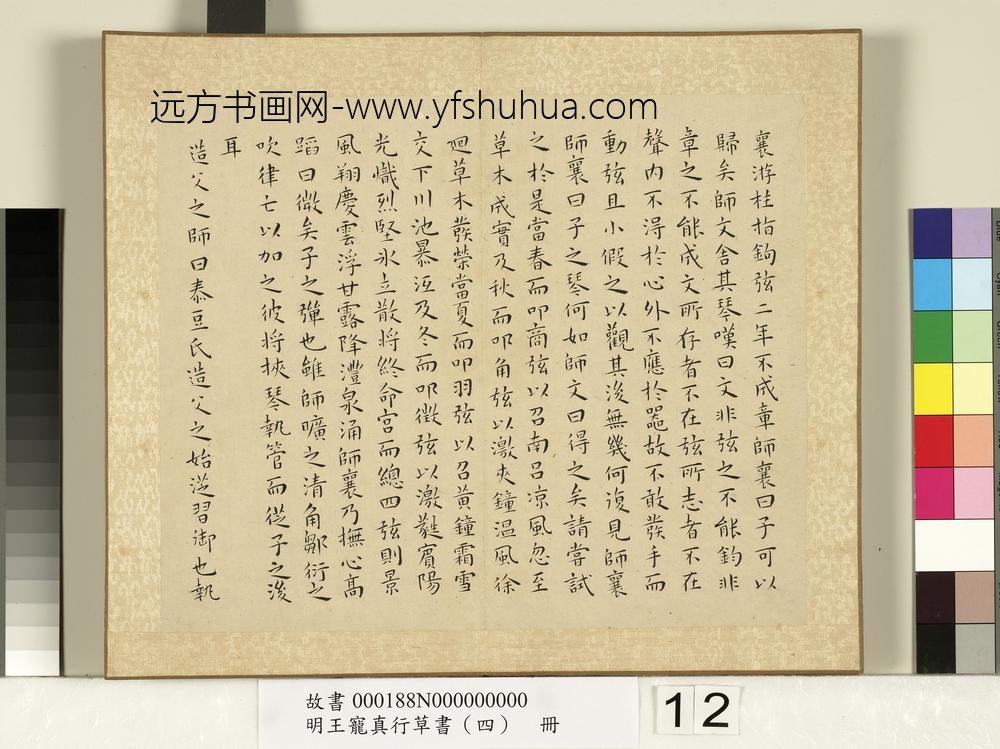 远方书画网-www.yfshuhua.com
襄游柱指鉤弦二年不成章師襄曰子可以
歸矣師文舍其琴嘆曰文非弦之不能鈞非
章之不能成文所存者不在弦所志者不在
聲內不得於心外不應於噐故不敢發手而
動弦且小假之以觀其後無幾何復見師襄
師襄曰子之琴何如師文曰得之矣請嘗試
之於是當春而叩商弦以召南呂凉風忽至
草木成實及秋而叩角弦以激夾鐘溫風徐
廻草木發榮當夏而叩羽弦以召黃鐘霜雪
交下川池暴沍及冬而叩徵弦以激蕤賓陽
光熾烈堅氷立散將終命宮而總四弦則景
風翔慶雲浮甘露降澧泉涌師襄乃撫心高
蹈曰微矣子之彈也雖師曠之清角鄒衍之
吹律亡以加之彼將挾琴執管而從子之後
耳
造父之師曰泰豆氏造父之始從習御也執
故書 000188N000000000
明王寵真行草書（四） 冊
12